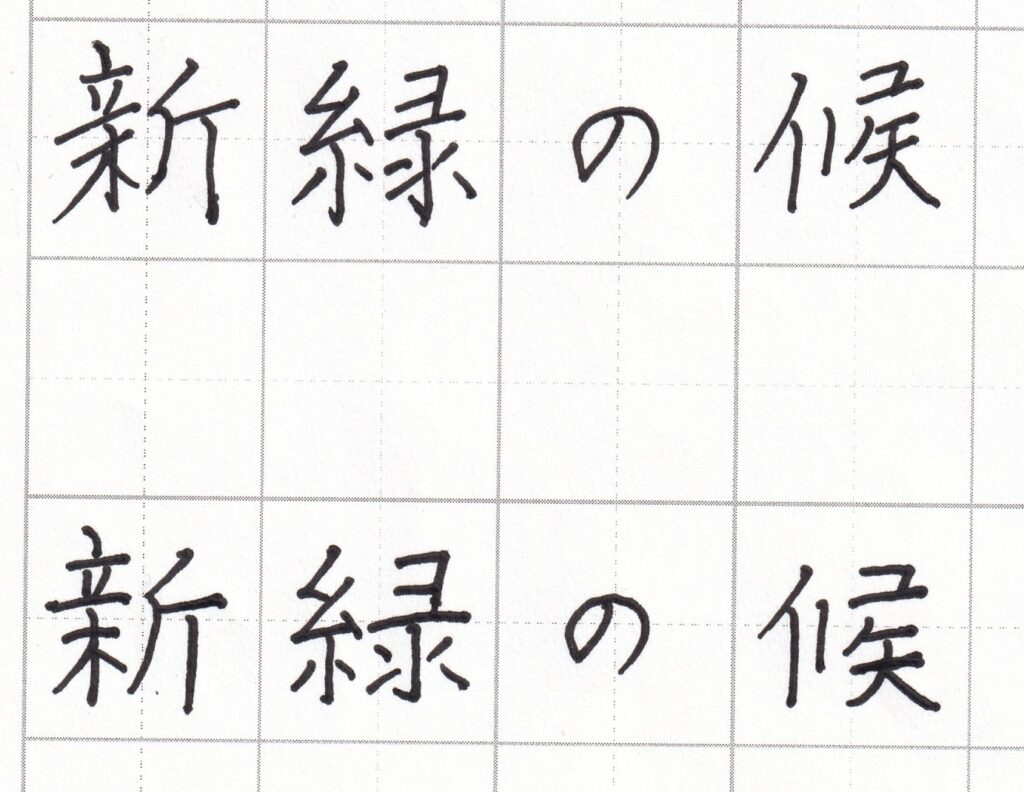 新緑の候
新緑の候